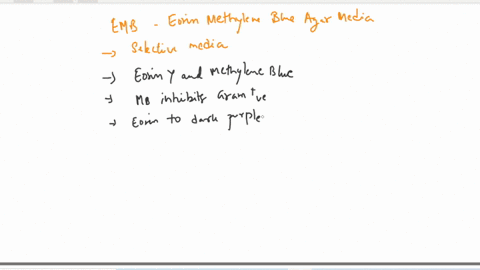 EMB - Eosin Methylene Blue Agar Media
→ Selective media
→ Eosin Y and Methylene Blue
→ MB inhibits Gram +ve
→ Eosin to dark purple